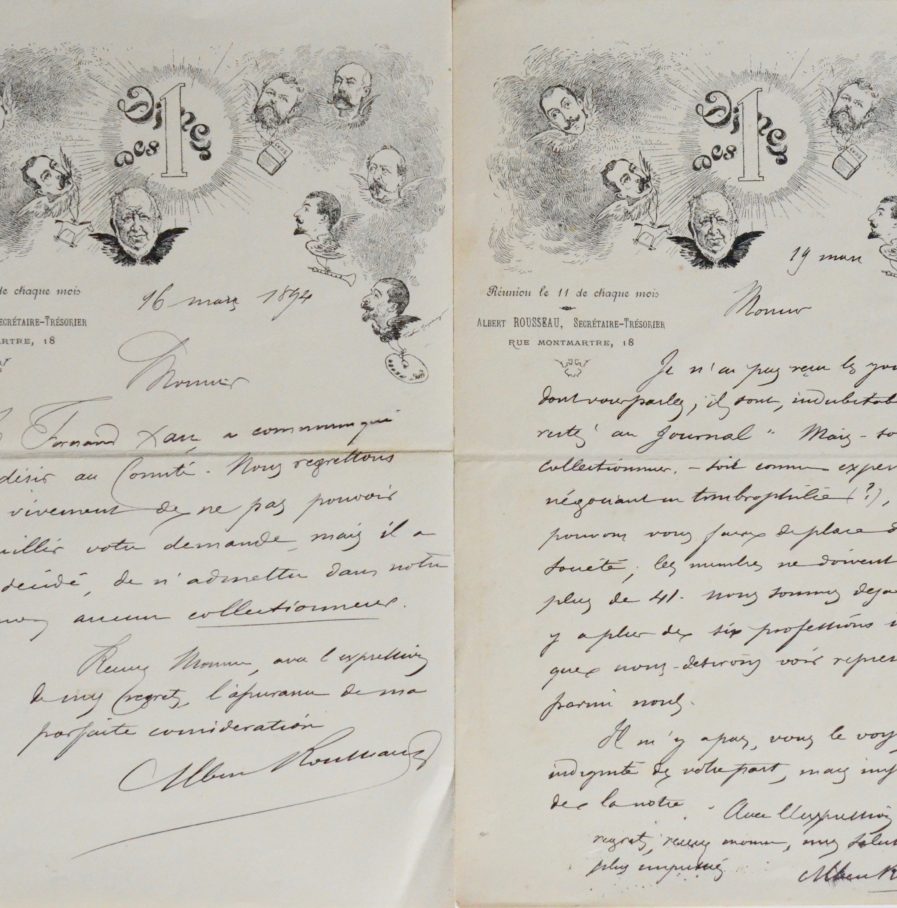 Dîner des 1
de chaque mois
16 mars 1894
ECRÉTAIRE-TRÉSORIER
ARTRE, 18
Monsieur
Fernand Xau, a communiqué
désir au Comité. Nous regrettons
vivement de ne pas pouvoir
eillir votre demande, mais il a
décidé, de n'admettre dans notre
aucun collectionneur.
Recevez Monsieur, avec l'expression
de mes regrets, l'assurance de ma
parfaite considération
Albert Rousseau
Dîner des 1
19 mars
Réunion le 11 de chaque mois
ALBERT ROUSSEAU, SECRÉTAIRE-TRÉSORIER
RUE MONTMARTRE, 18
Monsieur
Je n'ai pas reçu les jou
dont vous parlez, ils sont, indubitabl
restés au Journal " Mais - so
collectionneur, - soit comme exper
négociant en timbrophilie (?),
pouvons vous faire de place d
société; les membres ne doivent
plus de 41. Nous sommes déjà
y a plus de six professions
que nous désirons voir représen
parmi nous.
Il n'y a pas, vous le voy
indignité de votre part, mais imp
de la notre. Avec l'expression
regrets, recevez monsieur, mes salut
plus empressés
Albert R